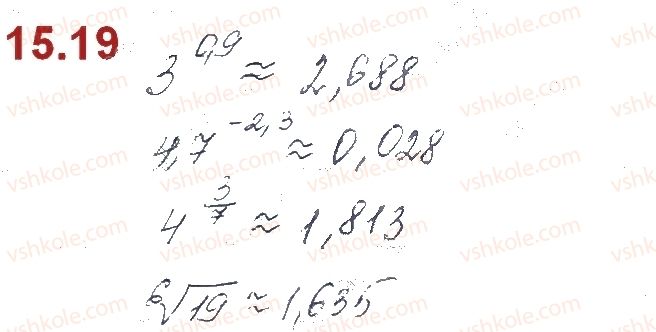 15.19
3^{0,9} ≈ 2,688
4,7^{-2,3} ≈ 0,028
4^{3/7} ≈ 1,813
⁶√19 ≈ 1,635
vshkole.com